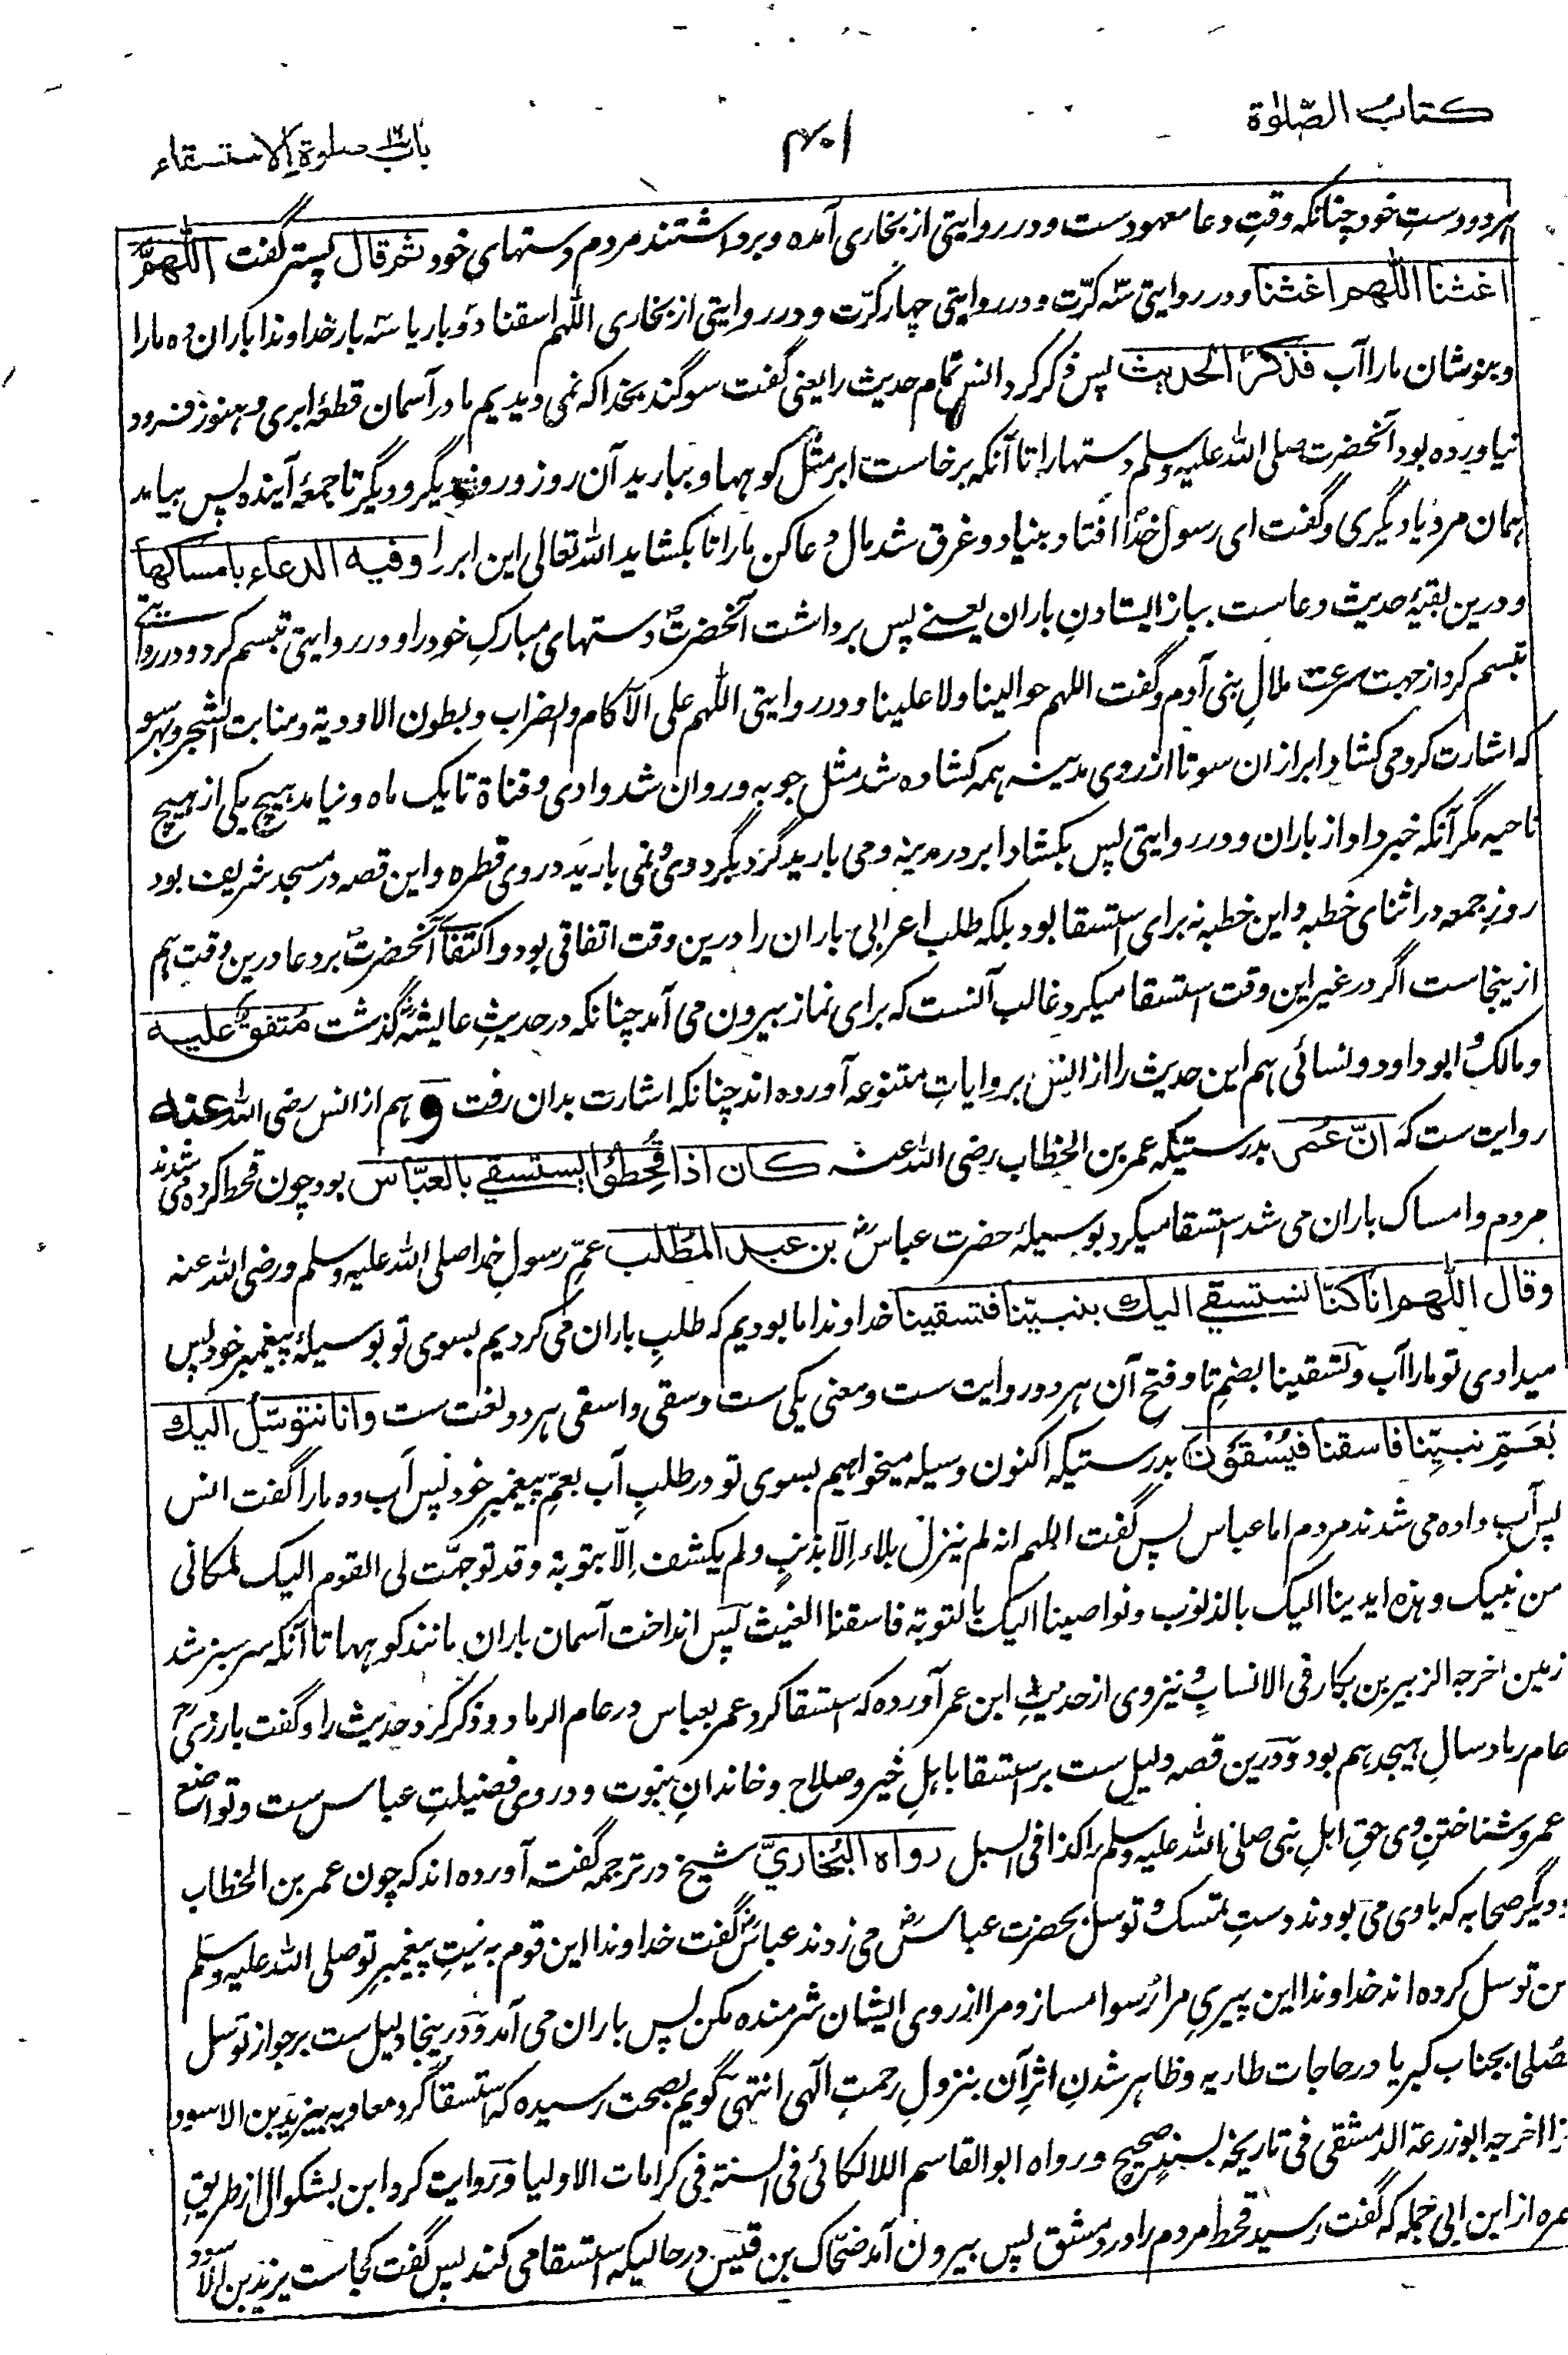 کتاب الصّلوٰة
۴۰۱
باب صلوة الاستسقاء
هر دو دستِ خود چنانکه وقتِ دعا معهودست و در روایتی از بخاری آمده و برداشتند مردم دستهای خود ثم قال پستر گفت اللّٰهمّ
اغثنا اللّٰهم اغثنا و در روایتی سّه کرّت و در روایتی چهار کرّت و در روایتی از بخاری اللّٰهم اسقنا دو بار یا سّه بار خداوندا باران ده ما را
و بنوشان ما را آب فذکر الحدیث پس ذکر کرد انس تمام حدیث را یعنی گفت سوگند بخدا که نمی دیدیم ما در آسمان قطعهٔ ابری و هنوز فرود
نیاورده بود آنحضرت صلی اللّٰه علیه وسلم دستها را تا آنکه برخاست ابر مثل کوهها و ببارید آن روز و روز دیگر و دیگر تا جمعهٔ آینده پس بیاید
همان مرد یا دیگری و گفت ای رسول خدا افتاد بنیاد و غرق شد مال دعا کن ما را تا بکشاید اللّٰه تعالی این ابر را وفیه الدعاء بامساکها
و درین بقیهٔ حدیث دعاست بباز ایستادنِ باران یعنے پس برداشت آنحضرتؐ دستهای مبارکِ خود را و در روایتی تبسم کرد و در روایتے
تبسم کرد از جهت سرعت ملالِ بنی آدم و گفت اللهم حوالینا ولا علینا و در روایتی اللّٰهم علی الآکام والضراب وبطون الاودیة ومنابت الشجر و بهر سو
که اشارت کرد می کشاد ابر از ان سو تا از روی مدینه همه کشاده شد مثل جوبه و روان شد وادی و قناة تا یک ماه و نیامد هیچ یکی از هیچ
ناحیه مگر آنکه خبر داد از باران و در روایتی پس بکشاد ابر در مدینه و می بارید گرد بگرد وی و نمی بارید در وی قطره و این قصه در مسجد شریف بود
روزِ جمعه در اثنای خطبه و این خطبه نه برای استسقا بود بلکه طلب اعرابی باران را درین وقت اتفاقی بود و اکتفاے آنحضرتؐ بر دعا درین وقت هم
ازینجاست اگر در غیر این وقت استسقا میکرد غالب آنست که برای نماز بیرون می آمد چنانکه در حدیثِ عایشهؓ گذشت مُتّفق علیه
و مالک و ابو داود و نسائی هم این حدیث را از انس بروایاتِ متنوعه آورده اند چنانکه اشارت بدان رفت و هم از انس رضی اللّٰه عنه
روایت ست که انّ عُمَر بدرستیکه عمر بن الخطاب رضی اللّٰه عنه کان اذا قُحِطُوا یستسقے بالعبّاس بود چون قحط کرده می شدند
مردم و امساک باران می شد استسقا میکرد بوسیلهٔ حضرت عباسؓ بن عبد المطّلب عمِّ رسولِ خدا صلی اللّٰه علیه وسلم و رضی اللّٰه عنه
وقال اللّٰهم انا کنّا نستسقے الیك بنبیّنا فتسقینا خداوندا ما بودیم که طلبِ باران می کردیم بسوی تو بوسیلهٔ پیغمبرِ خود پس
میدادی تو ما را آب و تسقینا بضمِ تا و فتح آن هر دو روایت ست و معنی یکی ست و سقی و اسقی هر دو لغت ست وانا نتوسّل الیك
بعَمِّ نبیّنا فاسقنا فیُسْقَوْنَ بدرستیکه اکنون وسیله میخواهیم بسوی تو در طلبِ آب بعمِّ پیغمبرِ خود پس آب ده ما را گفت انس
پس آب داده می شدند مردم اما عباس پس گفت اللهم انه لم ینزل بلاء اِلّا بذنبٍ ولم یکشف اِلّا بتوبة وقد توجّهت لی القوم الیک لمکانی
من نبیک وهذه ایدینا الیک بالذنوب ونواصینا الیک بالتوبة فاسقنا الغیث پس انداخت آسمان باران مانند کوهها تا آنکه سرسبز شد
زمین اخرجه الزبیر بن بکار فی الانساب و نیز وی از حدیثِ ابن عمر آورده که استسقا کرد عمر بعباس در عام الرماد و ذکر کرد حدیث را و گفت بارزی
عام رماد سالِ هیجدهم بود و درین قصه دلیل ست بر استسقا باهلِ خیر و صلاح و خاندانِ نبوت و در وی فضیلتِ عباس ست و تواضع
عمر و شناختنِ وی حقِ اهلِ نبی صلی اللّٰه علیه وسلم را کذا فی السبل رواه البُخاریّ شیخ در ترجمه گفت آورده اند که چون عمر بن الخطاب
و دیگر صحابه که با وی می بودند دستِ تمسک و توسل بحضرت عباسؓ می زدند عباسؓ گفت خداوندا این قوم به نیتِ پیغمبرِ تو صلی اللّٰه علیه وسلم
من توسل کرده اند خداوندا این پیریِ مرا رُسوا مساز و مرا از روی ایشان شرمنده مکن پس باران می آمد و درینجا دلیل ست بر جواز توسل
بجناب کبریا در حاجات طاریه و ظاهر شدنِ اثرِ آن بنزولِ رحمتِ الٰهی انتهی گویم بصحت رسیده که استسقا کرد معاویه بیزید بن الاسود
اخرجه ابو زرعة الدمشقی فی تاریخه بسندٍ صحیح ورواه ابو القاسم اللالکائی فی السنة فی کرامات الاولیا و روایت کرد ابن بشکوال از طریقِ
از ابن ابی حمله که گفت رسید قحط مردم را در دمشق پس بیرون آمد ضحّاک بن قیس در حالیکه استسقا می کند پس گفت کجاست یزید بن الاسود